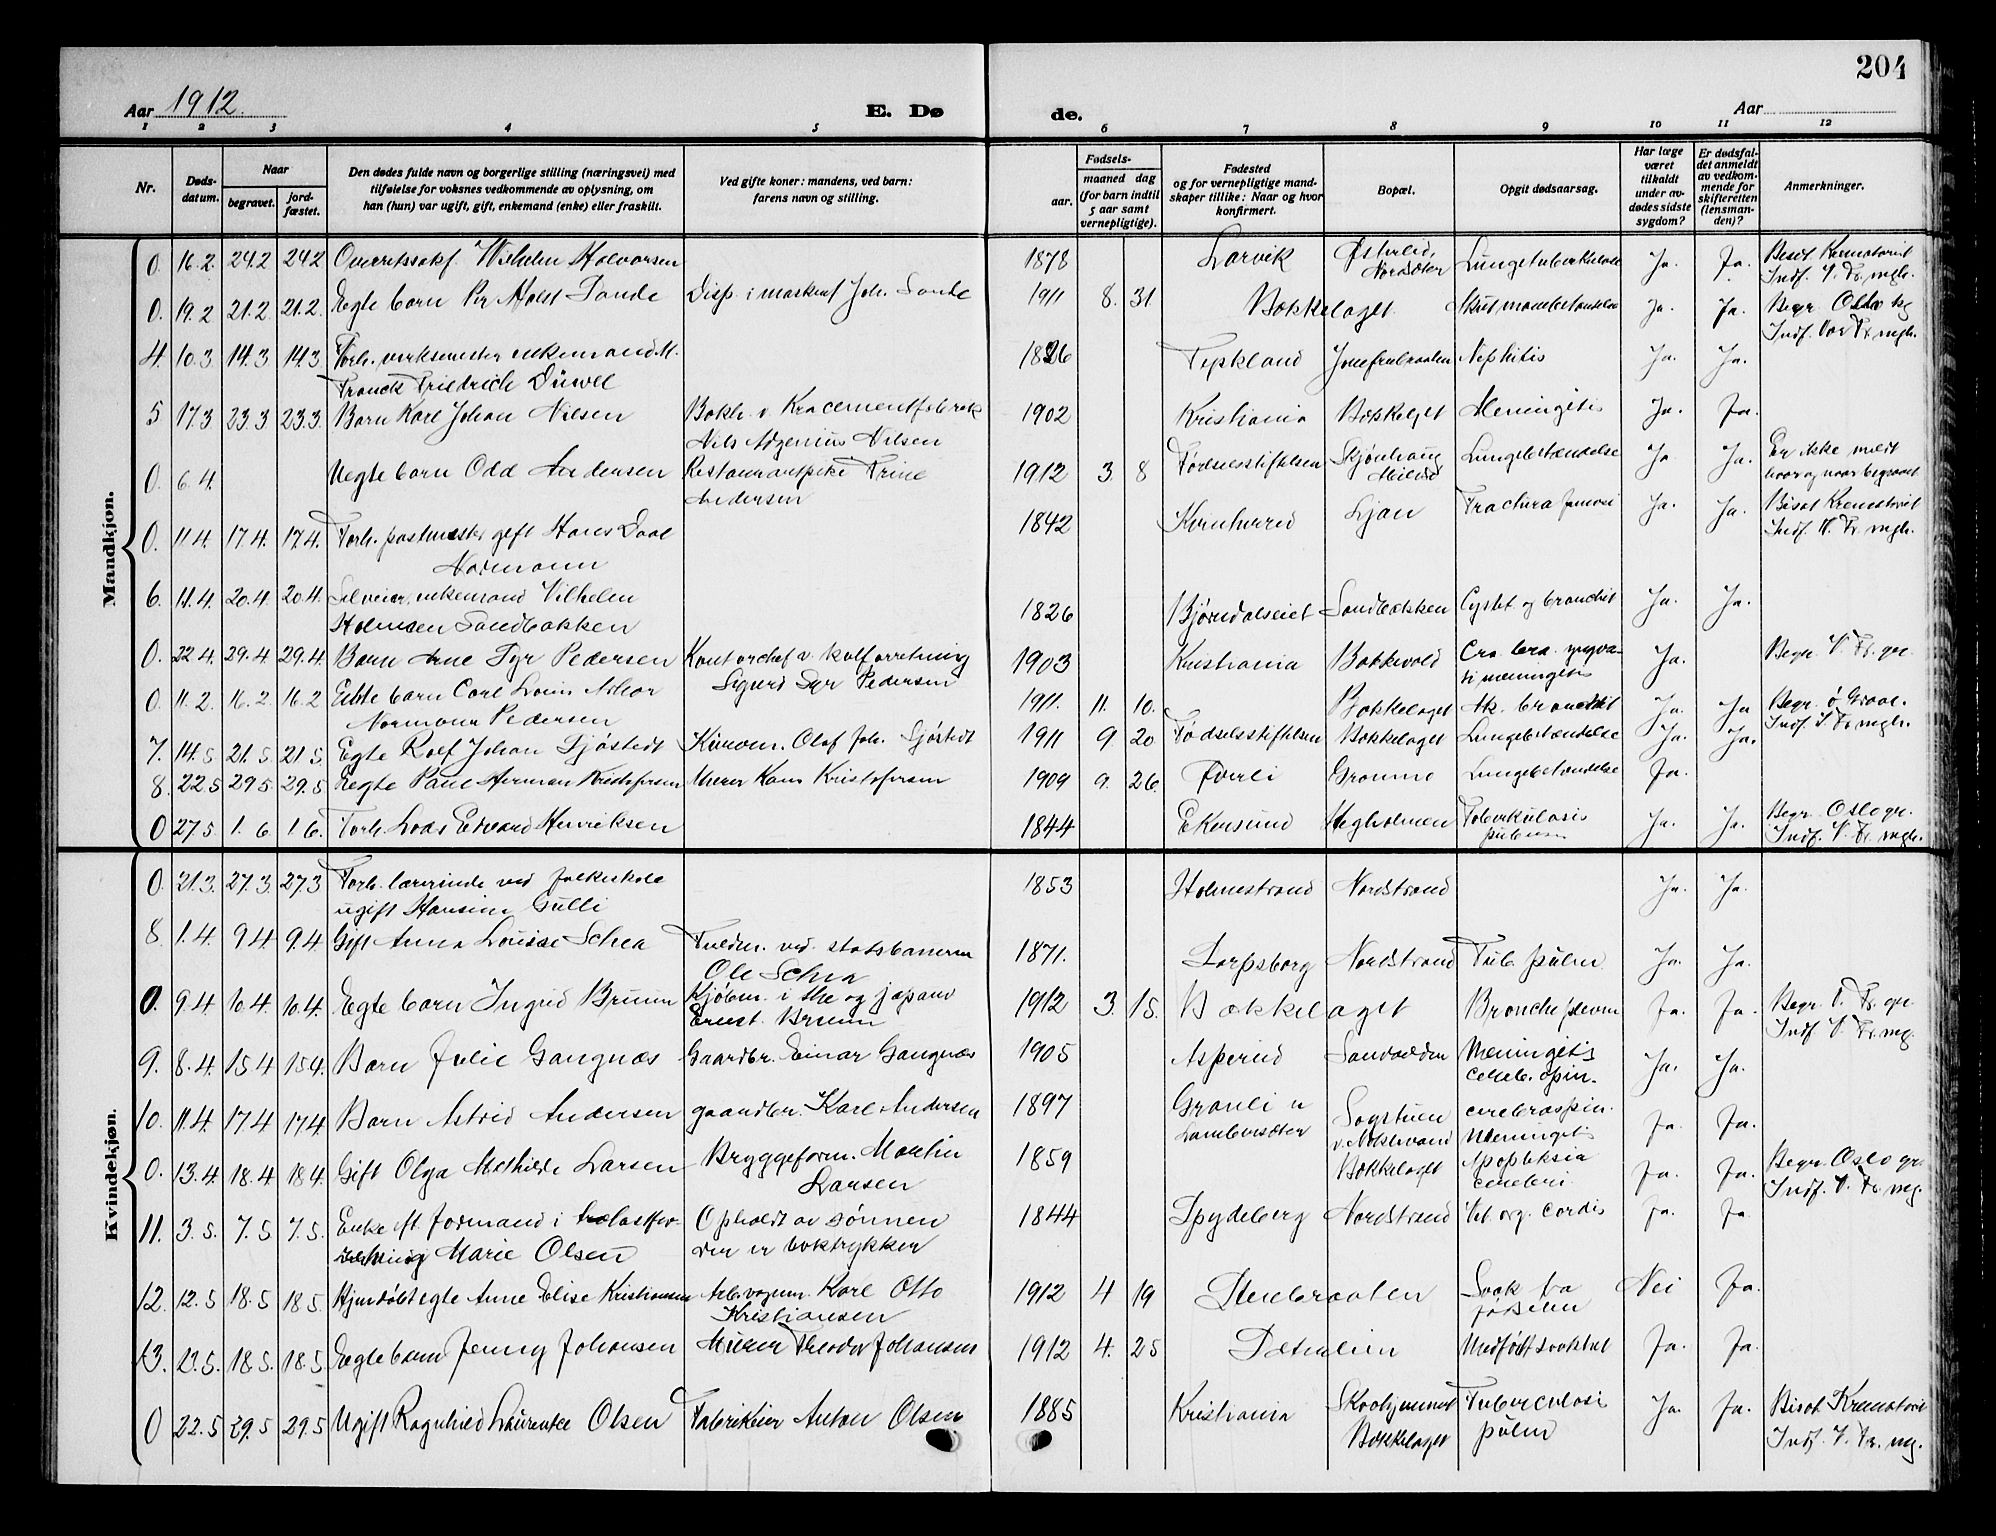 204
Aar 1912.
E. Dø
de.
Aar
1 2 3 4 5 6 7 8 9 10 11 12
Nr.
Døds-
datum.
Naar
begravet.
jord-
fæstet.
Den dødes fulde navn og borgerlige stilling (næringsvei) med
tilføielse for voksnes vedkommende av oplysning, om
han (hun) var ugift, gift, enkemand (enke) eller fraskilt.
Ved gifte koner: mandens, ved barn:
farens navn og stilling.
Fødsels-
aar.
maaned dag
(for barn indtil
5 aar samt
vernepligtige).
Fødested
og for vernepligtige mand-
skaper tillike: Naar og hvor
konfirmert.
Bopæl.
Opgit dødsaarsag.
Har læge
været
tilkaldt
under av-
dødes sidste
sygdom?
Er dødsfal-
det anmeldt
av vedkom-
mende for
skifteretten
(lensman-
den)?
Anmerkninger.
Mandkjøn.
0. 16.2. 24.2 24.2 Overretssakf. Wilhelm Halvorsen 1878 Larvik Østerlid, Lungetuberkulose Ja. Ja. Bisat Krematoriet
Nordsæter Indf. V. Fr. mgb.
0. 19.2 21.2. 21.2. Egte barn Per Holst Sande Disp. i maskinf. Joh. Sande 1911 8. 31. Bækkelaget Ja. Ja. Begr. Oslo kg
Indf. Vor Fr. mgb.
4. 10.3 14.3 14.3 Forh. verksmester enkemand M. 1826 Nephitis Ja. Ja.
Franck Friedrich Düwel
5 17.3 23.3 23.3. Barn Karl Johan Nilsen Bokh. v. 1902 Kristiania Bækkelget Meningitis Ja. Ja.
Nils Nilsen
0. 6.4. Uegte barn Odd Andersen Restaurantpike Trine 1912 3. 8 Fødselsstiftelsen Lungebetændelse Ja Ja. Er ikke meldt
Andersen hvor og naar begravet
0. 11.4. 17.4. 17.4. Forh. postmester gift Hans Daae 1842 Ljan Fractura femoris Ja. Ja. Bisat Krematoriet
Normann Indf. V. Fr. mgb.
6. 11.4. 20.4. 20.4. Selveier, enkemand Vilhelm 1826 Bjørndalseiet Sandbakken Cystit. og bronchit Ja. Ja.
Halvorsen Sandbakken
0. 22.4. 29.4 29.4. Barn Arne Syr Pedersen Kontorchef v. kulforretning 1903 Kristiania Bækkevold Ja. Begr. V. Fr. gr.
Sigurd Syr Pedersen
0. 11.2. 16.2. 16.2 Egte barn Carl Louis 1911. 11. 10. Bækkelaget Ak. bronchit Ja. Ja Begr. Ø Grav.
Normann Pedersen Indf. V. Fr. mgb.
7. 14.5 21.5. 21.5. Egte Rolf Johan Sjöstedt Olof Joh. Sjöstedt 1911 9 20 Fødselsstiftelsen Bækkelaget Lungebetændelse Ja. Ja.
8. 22.5 29.5. 29.5 Uegte Paul Herman Kristofersen Murer Hans Kristofersen 1909 9. 26. Gronmo Lungebetændelse Ja.
0 27.5 1.6. 1.6. Forh. Lods Edvard Henriksen 1844 Ekersund Hegholmen Tuberkulosis Ja. Ja. Begr. Oslo gr.
Indf. V. Fr. mgb.
Kvindekjøn.
0. 21.3. 27.3 27.3 Forh. lærerinde ved folkeskole 1853 Holmestrand Nordstrand Ja. Ja.
ugift Hansine Gulli
8. 1.4. 9.4 9.4 Gift Anna Louise Schea Fuldm. ved statsbanerne 1871. Sarpsborg Nordstrand Tub. pulm. Ja. Ja.
Ole Schea
0. 9.4. 16.4. 16.4. Egte barn Ingrid Bruun Kjøbm. i the og japanv 1912 3. 15. Bækkelaget Ja. Ja. Begr. V. Fr. gr.
Ernst Bruun Indf. V. Fr. mg.
9. 8.4. 15.4 15.4. Barn Julie Gangnæs Gaardbr. Einar Gangnæs 1905 Asperud Meningitis Ja. Ja.
cereb. spin.
10. 11.4. 17.4 17.4 Barn Astrid Andersen gaardbr. Karl Andersen 1897 Granli u Sagstuen cerebrospin. Ja. Ja.
Lambertsæter Meningitis
0. 13.4. 18.4 18.4. Gift Olga Mathilde Larsen Bryggeform. Martin 1859 Bækkelaget Apopleksia Ja. Ja. Begr. Oslo gr.
Larsen cerebri. Indf. V. Fr. mg.
11. 3.5. 7.5 7.5. Enke ef. formand i Opholdt av sønnen 1844 Spydeberg Nordstrand Vit. org. cordis Ja. Ja.
Marie Olsen der er boktrykker
12. 12.5 18.5 18.5. Hjemdøbt egte Anne Elise Kristiansen Karl Otto 1912 4 19 Stenbraaten Svak fra Nei Ja.
Kristiansen fødselen
13. 12.5. 18.5. 18.5 Egte barn Jenny Johansen Murer Theodor Johansen 1912 4. 25 Medfødt svakhet Ja. Ja.
0 22.5 29.5 29.5 Ugift Ragnhild Laurentze Olsen Fabrikeier Anton Olsen 1885 Kristiania Tuberculosis Ja. Ja. Bisat Krematoriet
Bækkelaget pulm Indf. V. Fr. mg.